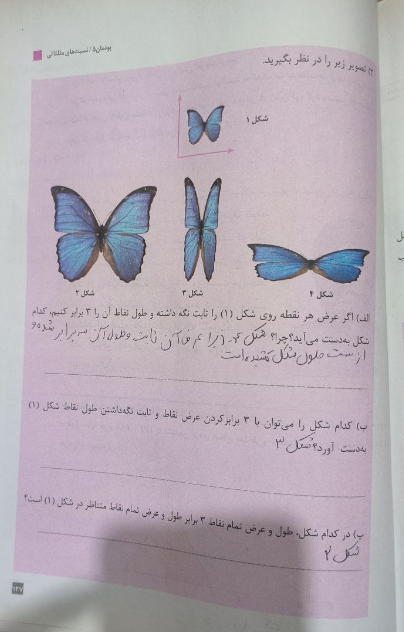 پودمان ۵ / نسبت‌های مثلثاتی
۲) تصویر زیر را در نظر بگیرید.
شکل ۱
شکل ۲
شکل ۳
شکل ۴
الف) اگر عرض هر نقطه روی شکل (۱) را ثابت نگه داشته و طول نقاط آن را ۳ برابر کنیم، کدام
شکل به‌دست می‌آید؟ چرا؟ شکل ۴. زیرا عرض آن ثابت و طول آن سه برابر شده و
از سمت طول شکل کشیده است
ب) کدام شکل را می‌توان با ۳ برابر کردن عرض نقاط و ثابت نگه‌داشتن طول نقاط شکل (۱)
به‌دست آورد؟ شکل ۳
پ) در کدام شکل، طول و عرض تمام نقاط ۳ برابر طول و عرض تمام نقاط متناظر در شکل (۱) است؟
شکل ۲
۱۳۷